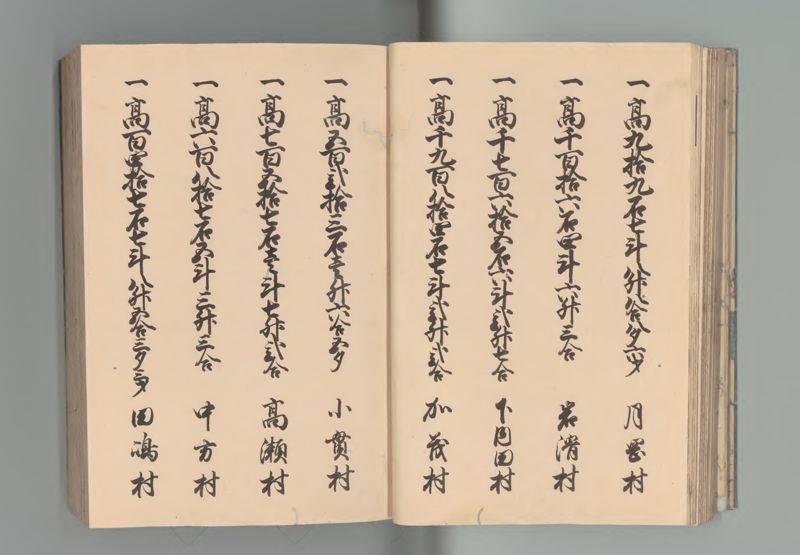 一高九拾九石七斗八升八合八夕六才 月岡村
一高千百拾六石四斗六升三合 岩滑村
一高千七百六拾五石六斗弐升七合 下内田村
一高千九百八拾四石七斗弐升弐合 加茂村
一高五百弐拾三石壱升六合五夕 小貫村
一高七百五拾七石壱斗七升弐合 高瀬村
一高六百八拾七石五斗三升三合 中方村
一高百四拾七石七斗八升五合三夕 田嶋村